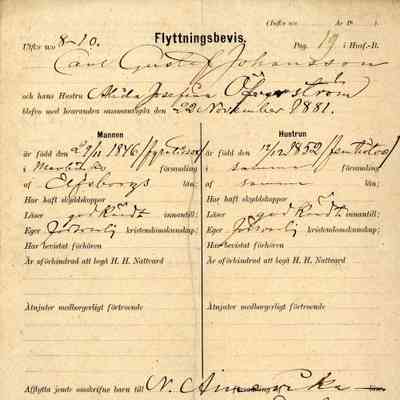 (Införd n:o År 18 ).
Flyttningsbevis.
Utfäs n:o 8-10. Pag. 19 i Husf.-B.
Carl Gustaf Johansson
och hans Hustru Alida Josefina Öfverström
blefvo med hvarandra sammanvigda den 22 November 1881.
Mannen
är född den 29/11 1846 /fyratiosex/
i församling
af Elfsborgs län;
Har haft skyddskoppor
Läser godkändt innantill;
Eger försvarlig kristendomskunskap;
Har bevistat förhören
Är oförhindrad att begå H. H. Nattvard
Åtnjuter medborgerligt förtroende
Hustrun
är född den 17/12 1852 /femtiotvå/
i samma församling
af samma län;
Har haft skyddskoppor
Läser godkändt innantill;
Eger försvarlig kristendomskunskap;
Har bevistat förhören
Är oförhindrad att begå H. H. Nattvard
Åtnjuter medborgerligt förtroende
Afflytta jemte omskrifne barn till N. Amerika församling län